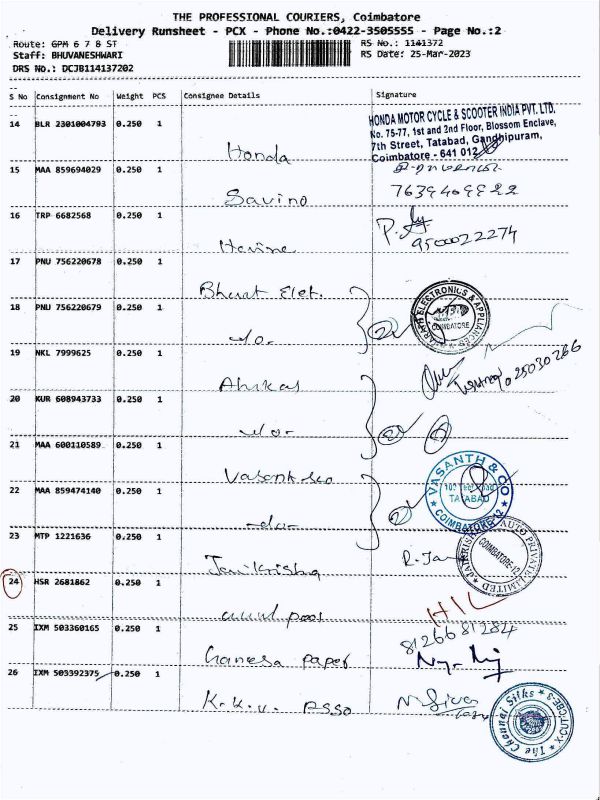 THE PROFESSIONAL COURIERS, Coimbatore
Delivery Runsheet - PCX - Phone No.:0422-3505555 - Page No.:2
Route: GPM 6 7 8 ST RS No.: 1141372
Staff: BHUVANESHWARI RS Date: 25-Mar-2023
DRS No.: DCJB114137202
S No Consignment No Weight PCS Consignee Details Signature
14 BLR 2301004793 0.250 1 Honda
HONDA MOTOR CYCLE & SCOOTER INDIA PVT. LTD.
No. 75-77, 1st and 2nd Floor, Blossom Enclave,
7th Street, Tatabad, Gandhipuram,
Coimbatore - 641 012
15 MAA 859694029 0.250 1 Savino
16 TRP 6682568 0.250 1
9500022274
17 PNU 756220678 0.250 1 Bharat Elet.
BHARATH ELECTRONICS & APPLIANCES
COIMBATORE
18 PNU 756220679 0.250 1 -do-
19 NKL 7999625 0.250 1
20 KUR 608943733 0.250 1 -do-
21 MAA 600110589 0.250 1 Vasanth &co
VASANTH & CO
TATABAD
COIMBATORE-12
22 MAA 859474140 0.250 1 -do-
23 MTP 1221636 0.250 1 Jaikrishna
AUTO PRIVATE LIMITED
COIMBATORE-12
24 HSR 2681862 0.250 1
25 IXM 503360165 0.250 1 Ganesa paper
8126681284
26 IXM 503392375 0.250 1 K.K.V. ASSO
The Chennai Silks